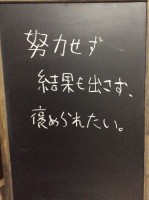 努力せず
結果も出さず、
褒められたい。